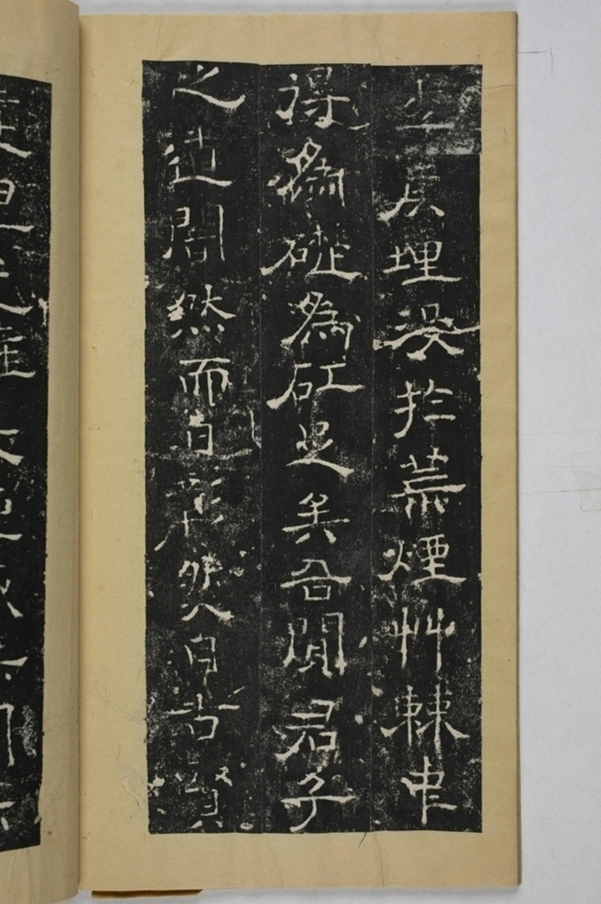 埋没扵荒煙艸棘中
得為礎為矼足矣吾聞君子
之道闇然而日彰然自古賢